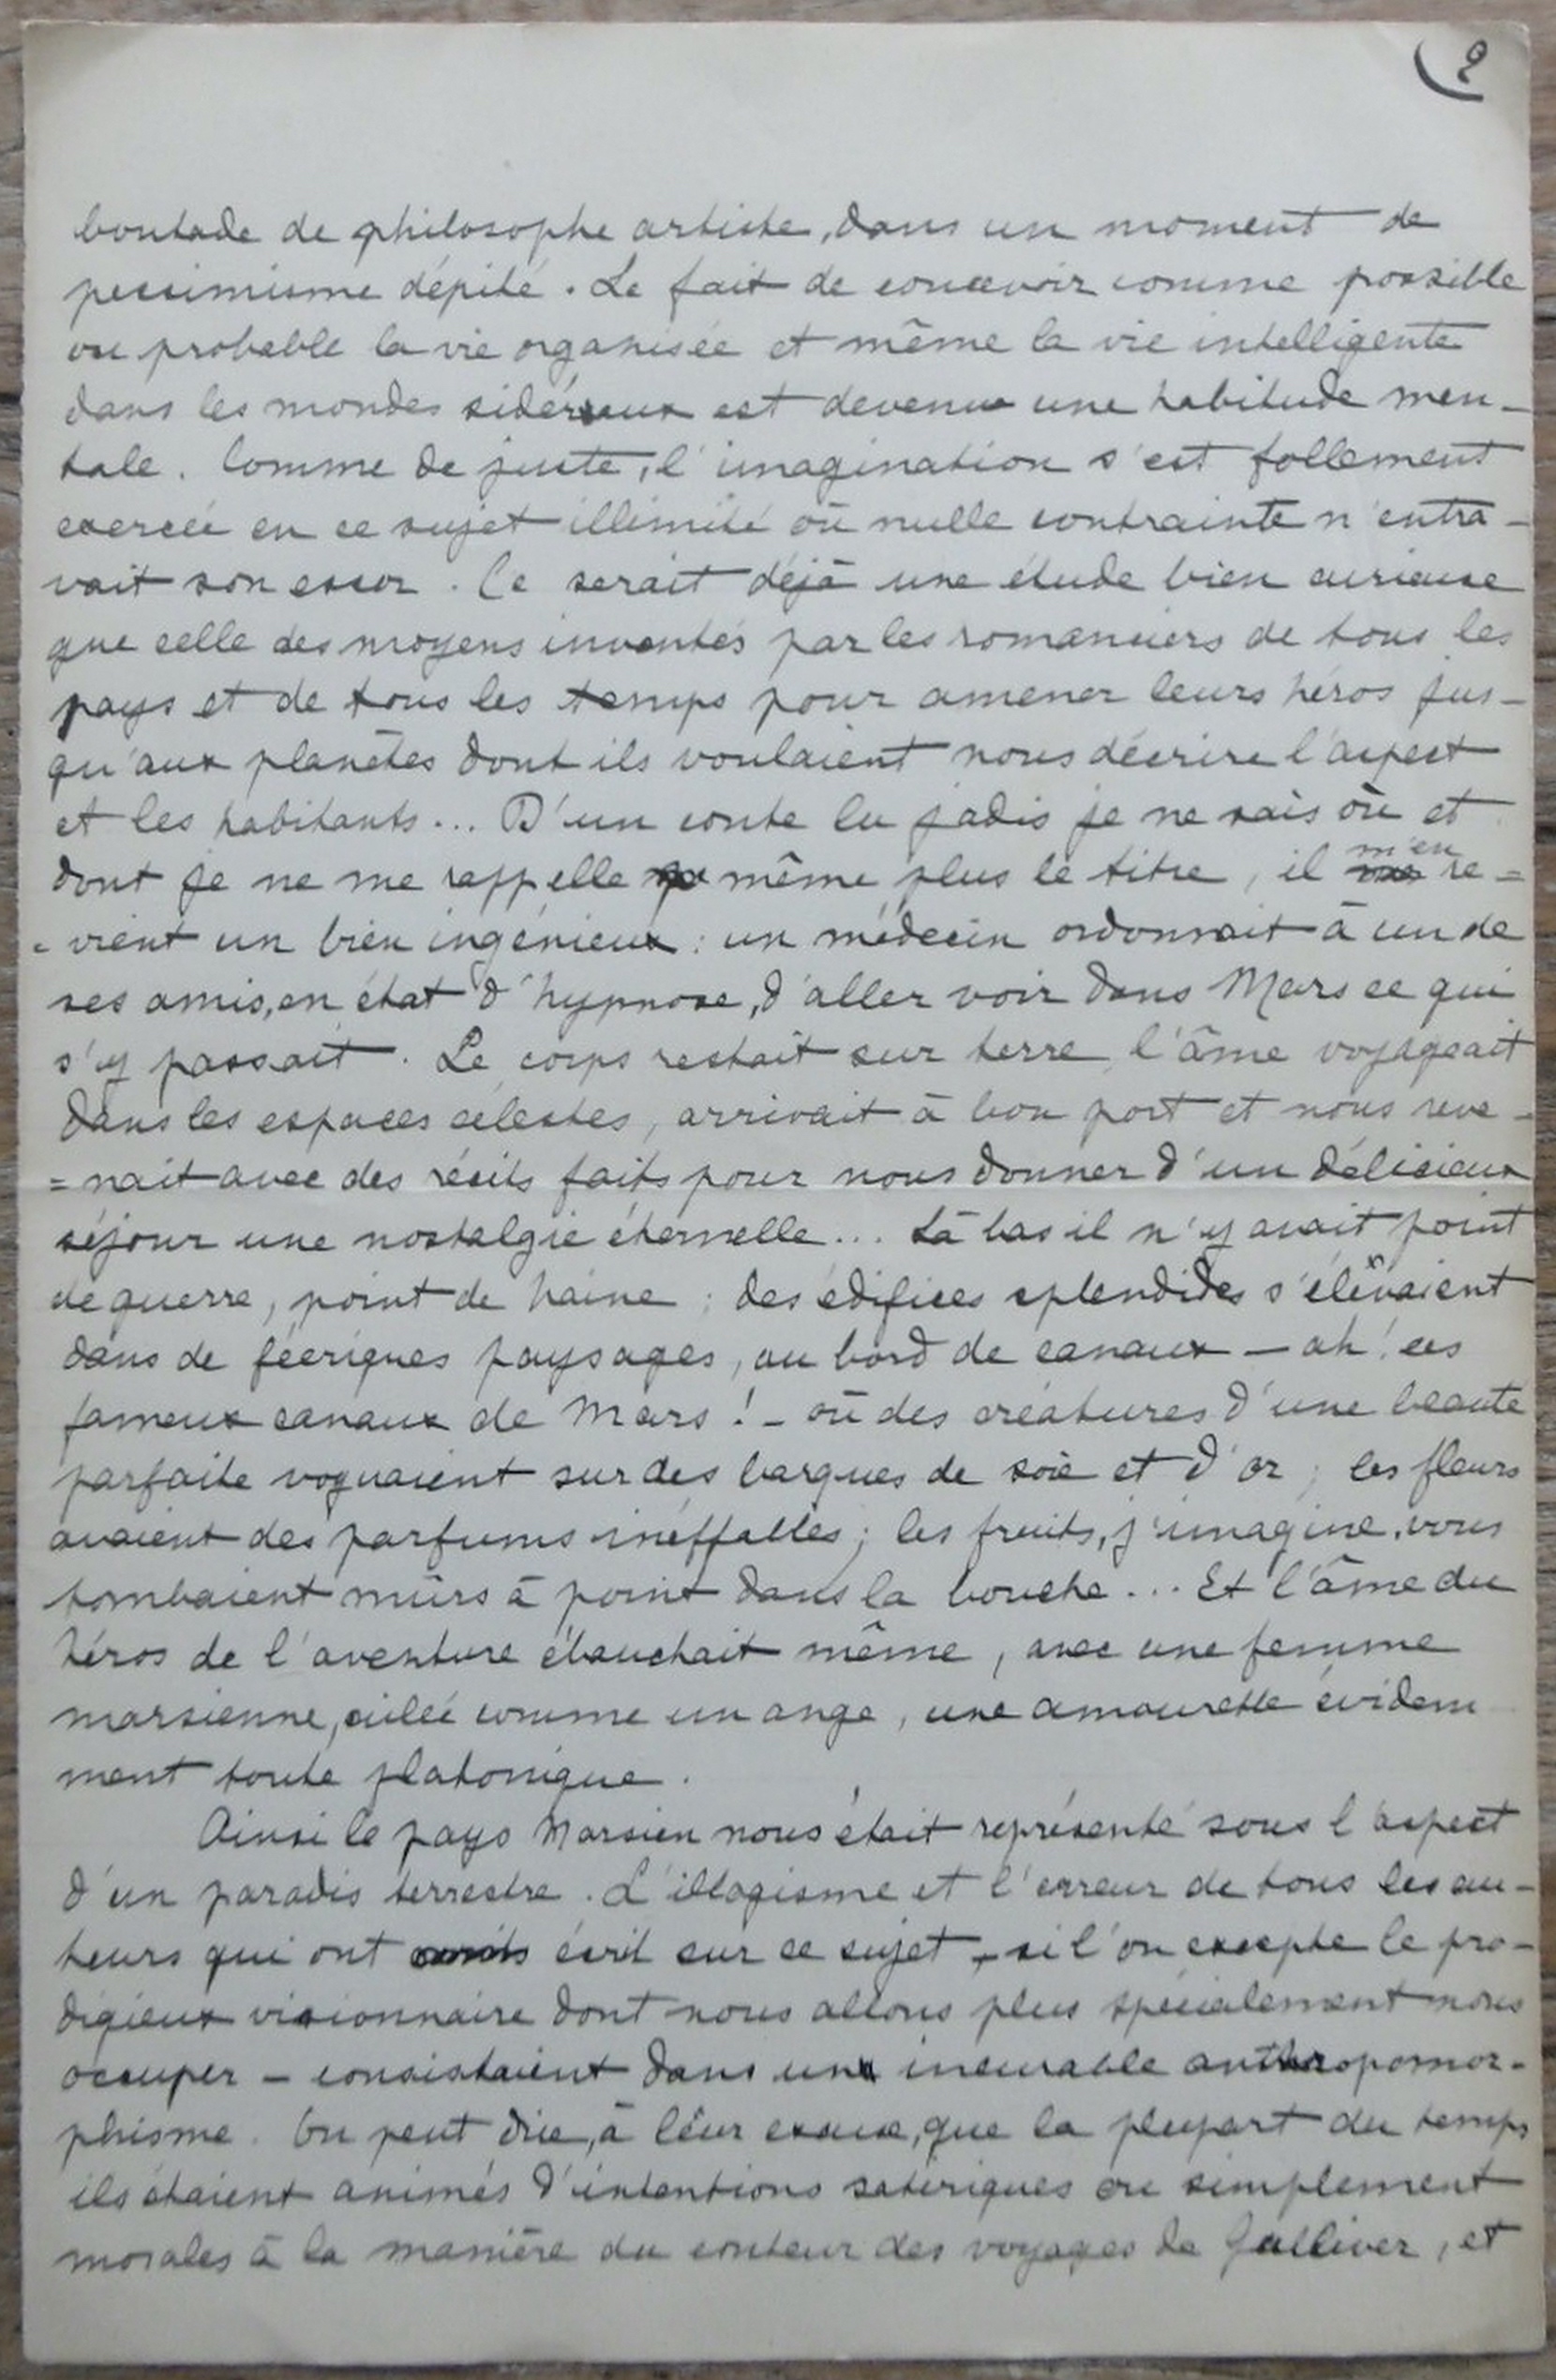 2
boutade de philosophe artiste, dans un moment de
pessimisme dépité. Le fait de concevoir comme possible
ou probable la vie organisée et même la vie intelligente
dans les mondes sidéraux est devenu une habitude men-
tale. Comme de juste, l'imagination s'est follement
exercée en ce sujet illimité où nulle contrainte n'entra-
vait son essor. Ce serait déjà une étude bien curieuse
que celle des moyens inventés par les romanciers de tous les
pays et de tous les temps pour amener leurs héros jus-
qu'aux planètes dont ils voulaient nous décrire l'aspect
et les habitants... D'un conte lu jadis je ne sais où et
dont je ne me rappelle même plus le titre, il m'en re=
=vient un bien ingénieux : un médecin ordonnait à un de
ses amis, en état d'hypnose, d'aller voir dans Mars ce qui
s'y passait. Le corps restait sur terre, l'âme voyageait
dans les espaces célestes, arrivait à bon port et nous reve=
=nait avec des récits faits pour nous donner d'un délicieux
séjour une nostalgie éternelle... Là bas il n'y avait point
de guerre, point de haine ; des édifices splendides s'élevaient
dans de féeriques paysages, au bord de canaux — ah ! ces
fameux canaux de Mars ! — où des créatures d'une beauté
parfaite voguaient sur des barques de soie et d'or ; les fleurs
avaient des parfums ineffables ; les fruits, j'imagine, vous
tombaient mûrs à point dans la bouche... Et l'âme du
héros de l'aventure ébauchait même, avec une femme
marsienne, ailée comme un ange, une amourette évidem
ment toute platonique.
Ainsi le pays Marsien nous était représenté sous l'aspect
d'un paradis terrestre. L'illogisme et l'erreur de tous les au-
teurs qui ont écrit sur ce sujet — si l'on excepte le pro-
digieux visionnaire dont nous allons plus spécialement nous
occuper — consistaient dans un incurable anthropomor-
phisme. On peut dire, à leur excuse, que la plupart du temps
ils étaient animés d'intentions satiriques ou simplement
morales à la manière du conteur des voyages de Gulliver, et